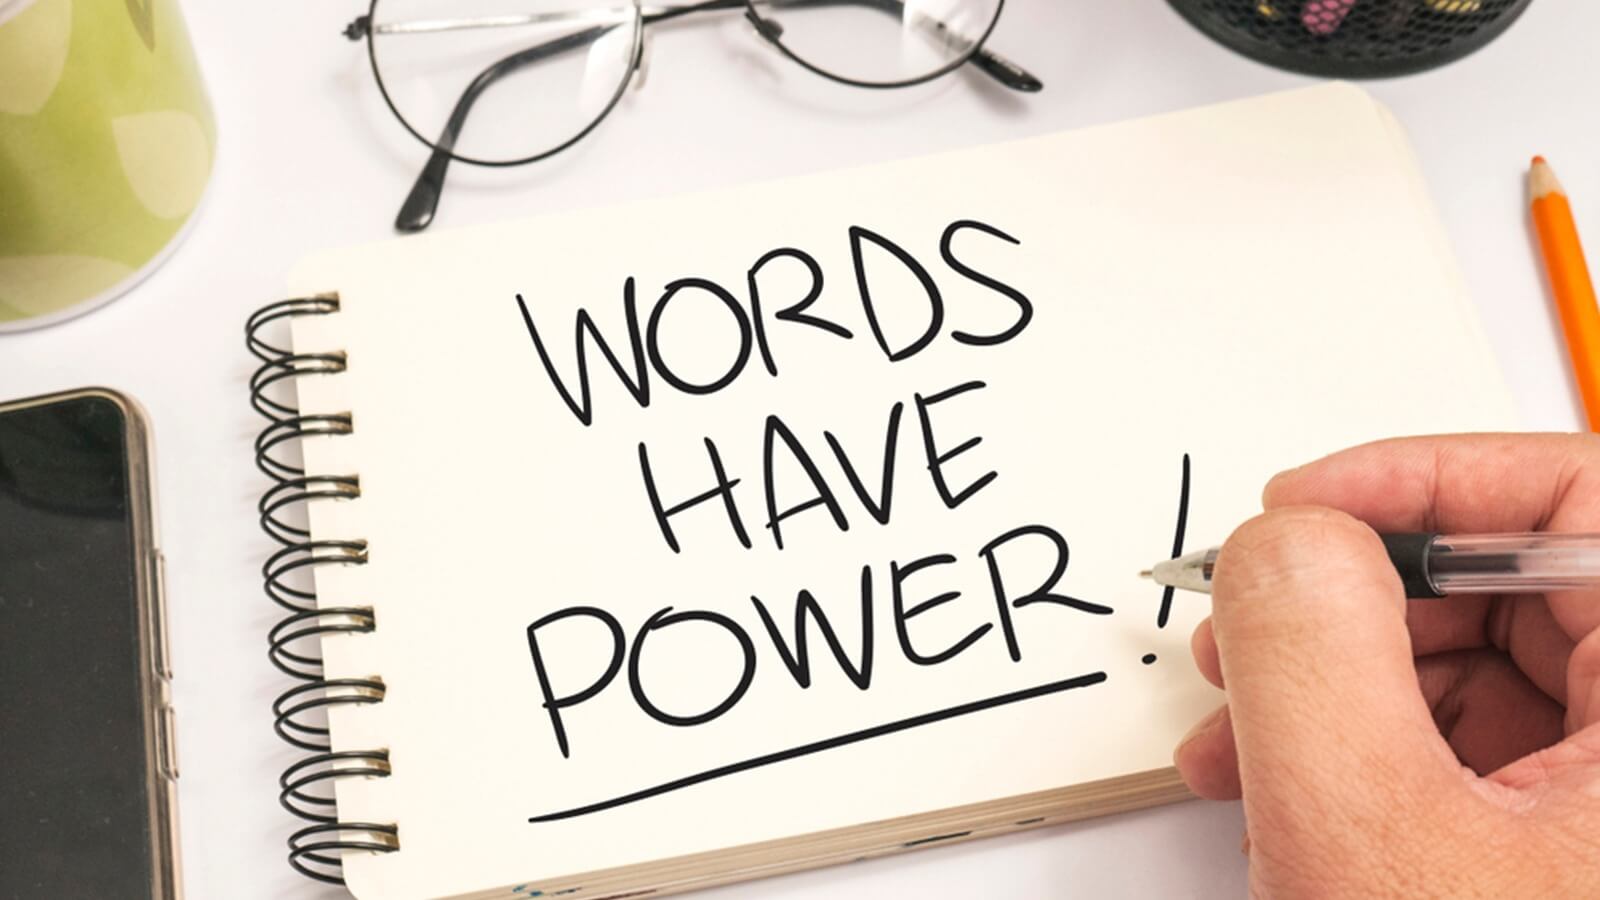 WORDS
HAVE
POWER!